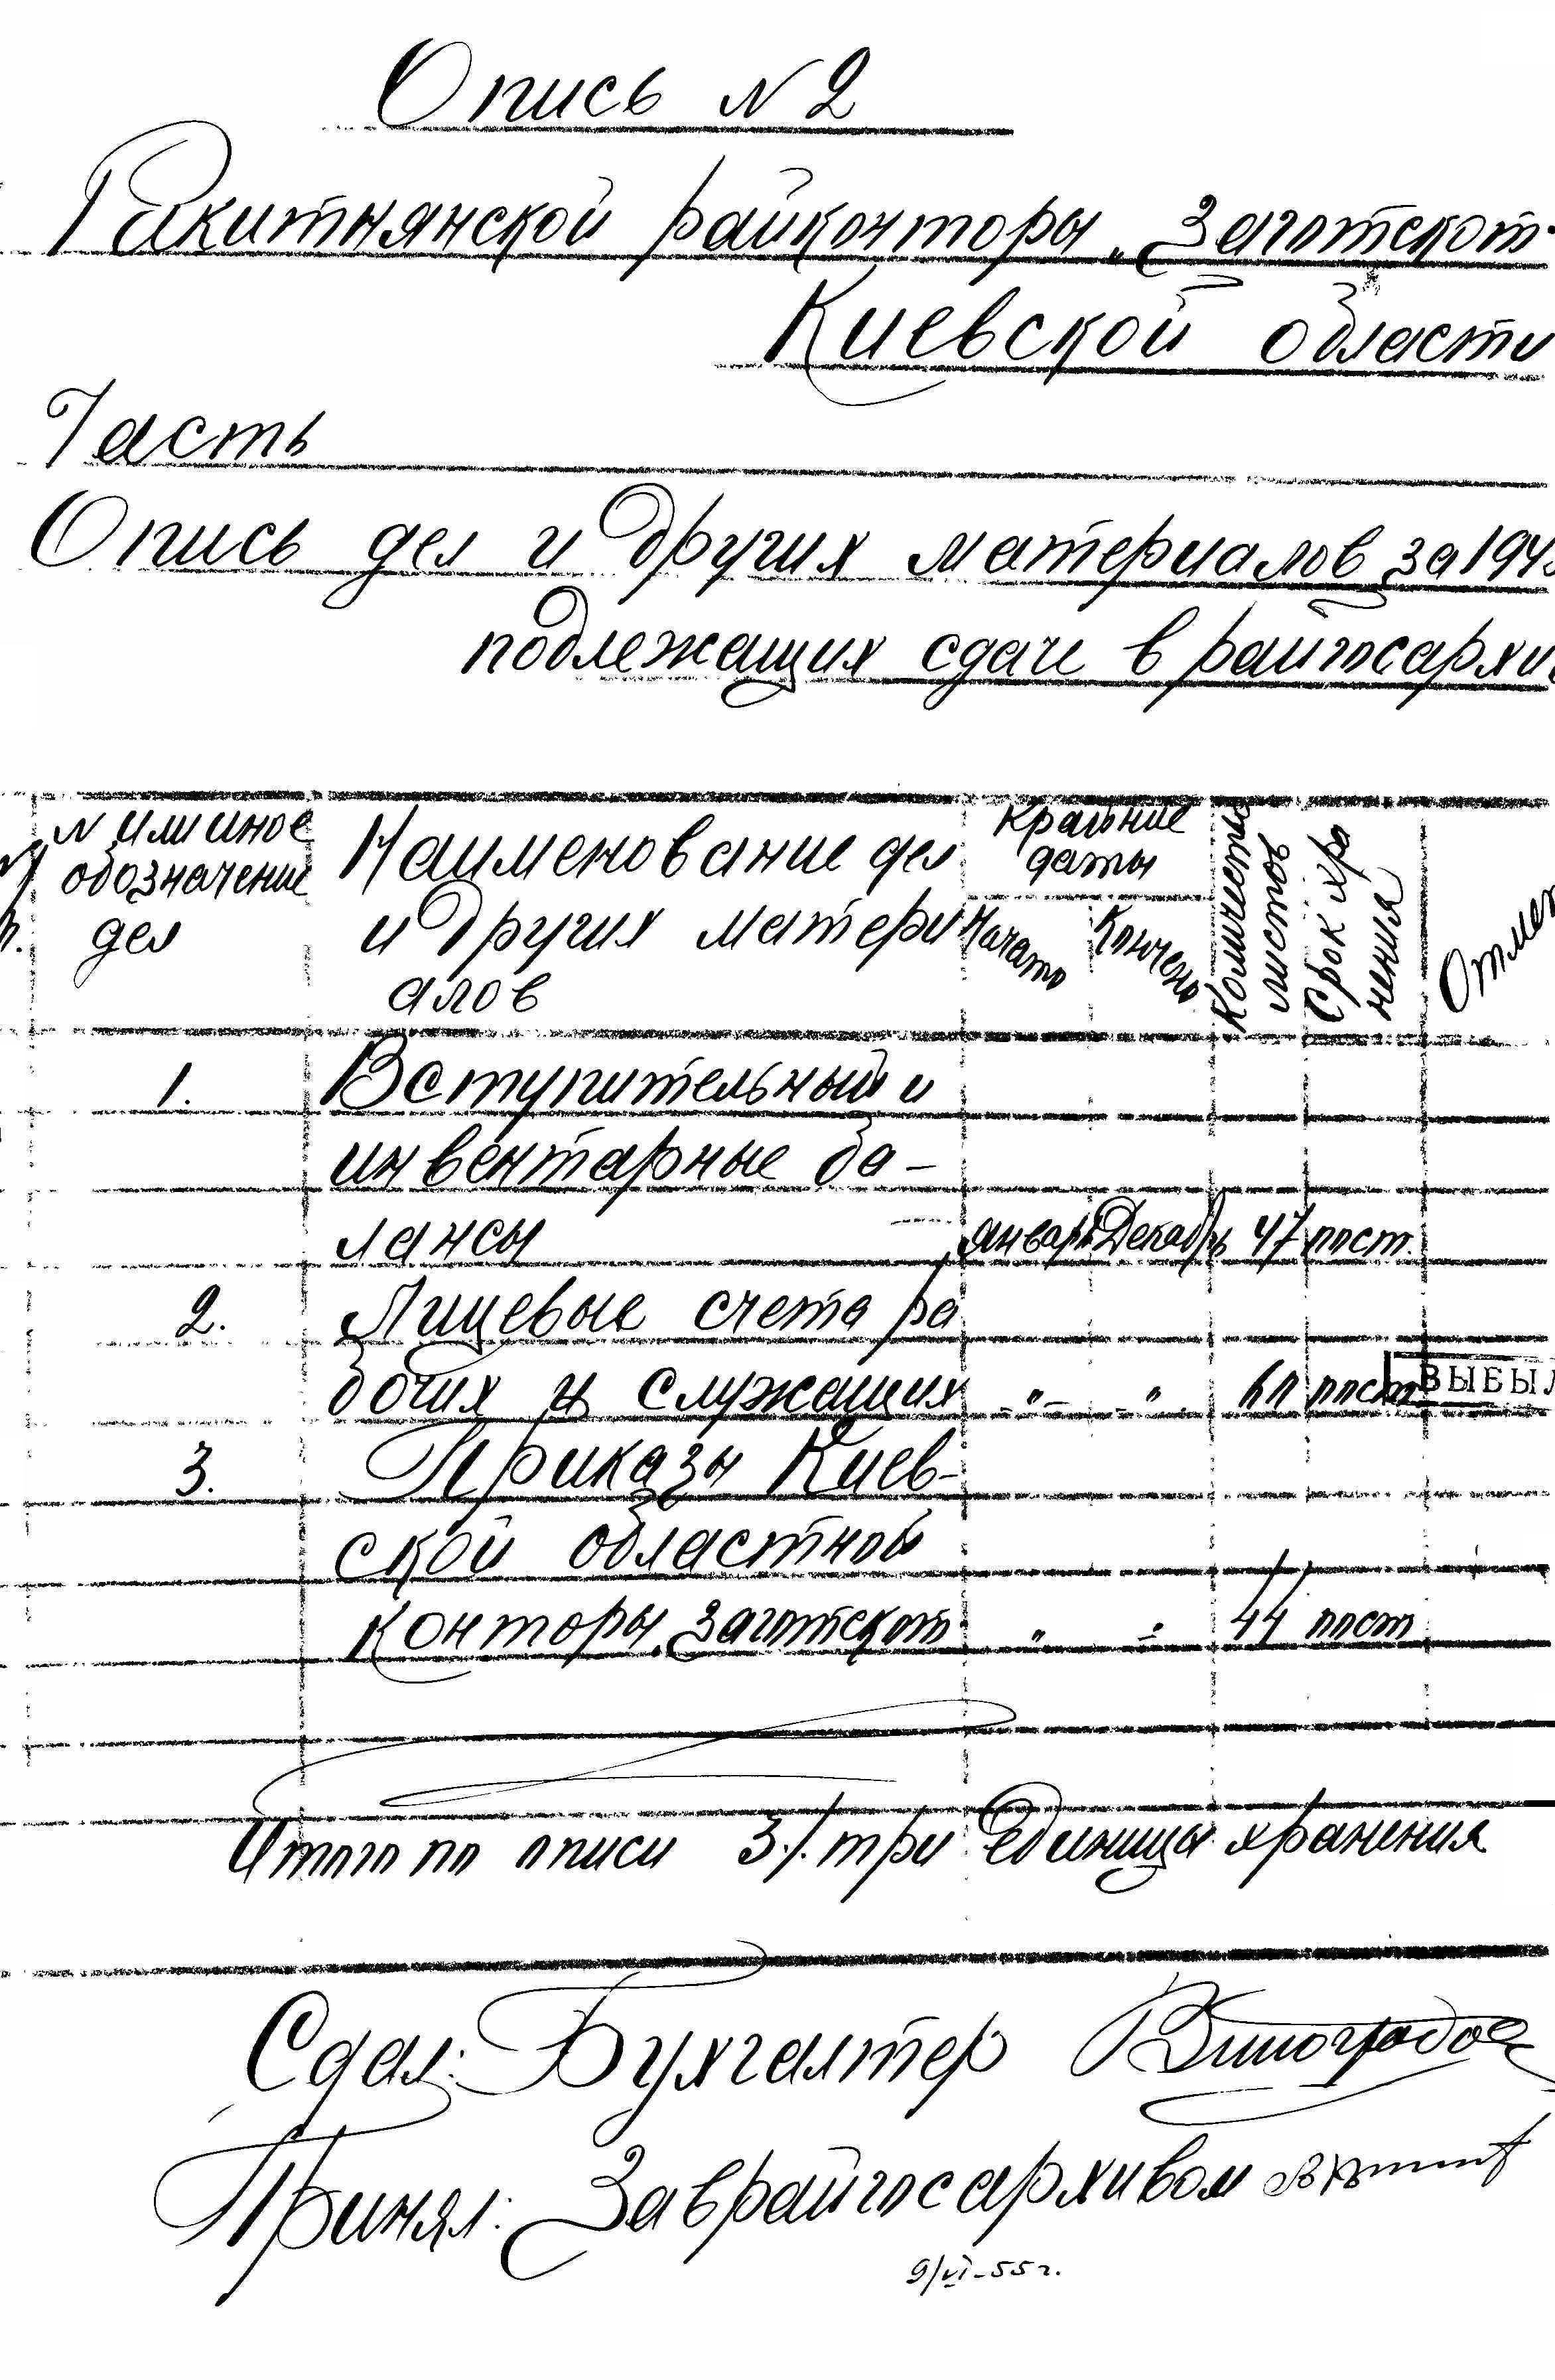 Опись № 2
Ракитнянской райконторы „Заготскот"
Киевской области
Часть
Опись дел и других материалов за 194
подлежащих сдаче в райгосархи
№ или иное обозначение дел
Наименование дел и других матери алов
Крайние даты
Начато
Кончено
Количество листов
Срок хра нения
Отмет
1. Вступительный и
инвентарные ба-
лансы январь Декабрь 47 пост.
2. Лицевые счета ра
бочих и служащих -"- " пост ВЫБЫЛ
3. Приказы Киев-
ской областной
конторы „Заготскот" " " 44 пост
Итого по описи 3/три единицы хранения
Сдал: Бухгалтер Виноградов
Принял: Заврайгосархивом
9/VI-55 г.